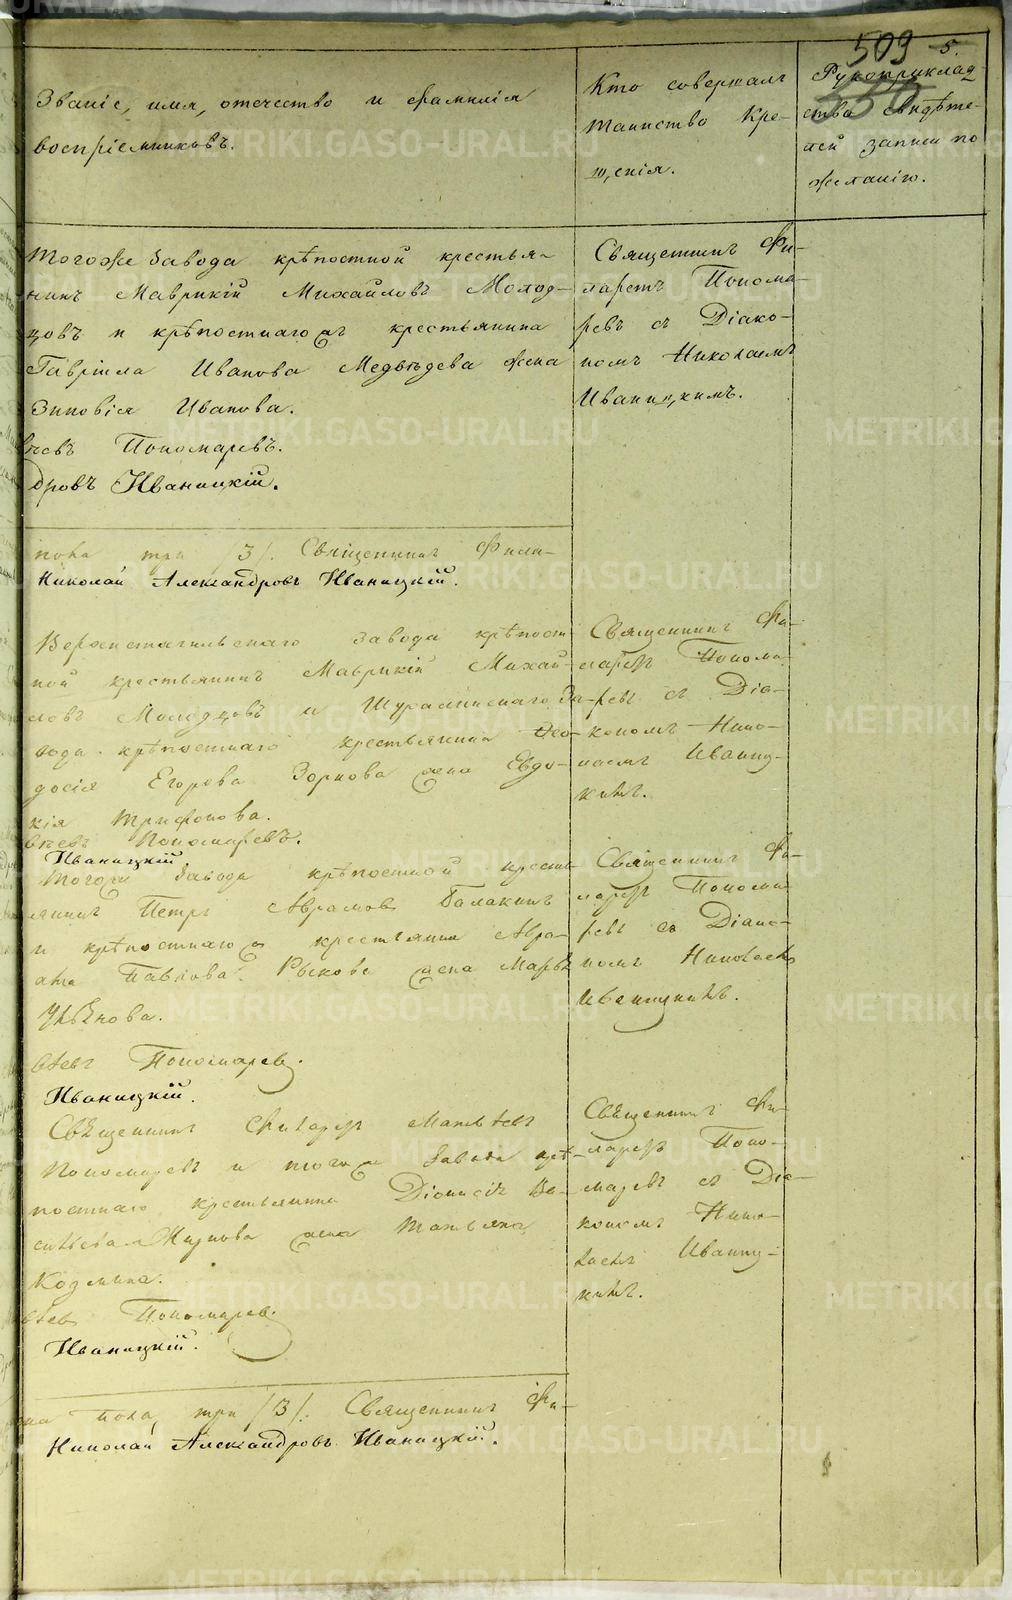 509 5.
Званіе, имя, отечество и фамилія
воспріемниковъ.
Кто совершалъ
таинство Кре-
щенія.
Рукоприклад-
ство свидѣте-
лей записи по
желанію.
Тогоже Завода крѣпостной крестья-
нинъ Маврикій Михайловъ Молод-
цовъ и крѣпостнаго крестьянина
Гавріила Иванова Медвѣдева жена
Зиновія Иванова.
вѣевъ Пономаревъ.
дровъ Иваницкій.
Священникъ Фи-
ларетъ Понома-
ревъ съ Діако-
номъ Николаемъ
Иваницкимъ.
пола три /3/. Священникъ Фила-
Николай Александровъ Иваницкій.
Верхнетагильскаго завода крѣпост
ной крестьянинъ Маврикій Михай-
ловъ Молодцовъ и Шуралинскаго За-
вода крѣпостнаго крестьянина Ѳео-
досія Егорова Зорнова жена Евдо-
кія Трифонова.
вѣевъ Пономаревъ.
Иваницкій.
Священникъ Фи-
ларетъ Понома-
ревъ съ Діа-
кономъ Нико-
лаемъ Иваниц-
кимъ.
Тогоже Завода крѣпостной кресть
янинъ Петръ Аврамовъ Балакинъ
и крѣпостнаго крестьянина Авра-
ама Павлова Рыкова жена Марѳа
Священникъ Фи-
ларетъ Понома
ревъ съ Діако-
номъ Николаемъ
Иваницкимъ.
вѣевъ Пономаревъ.
Иваницкій.
Священникъ Филаретъ Матвѣевъ
Пономаревъ и тогоже Завода крѣ-
постнаго крестьянина Діонисія Ва-
сильева жена Татьяна
Козмина.
вѣевъ Пономаревъ.
Иваницкій.
Священникъ Фи-
ларетъ Поно-
маревъ съ Діа-
кономъ Нико-
лаемъ Иваниц-
кимъ.
пола, три /3/. Священникъ Фи-
Николай Александровъ Иваницкій.
METRIKI.GASO-URAL.RU